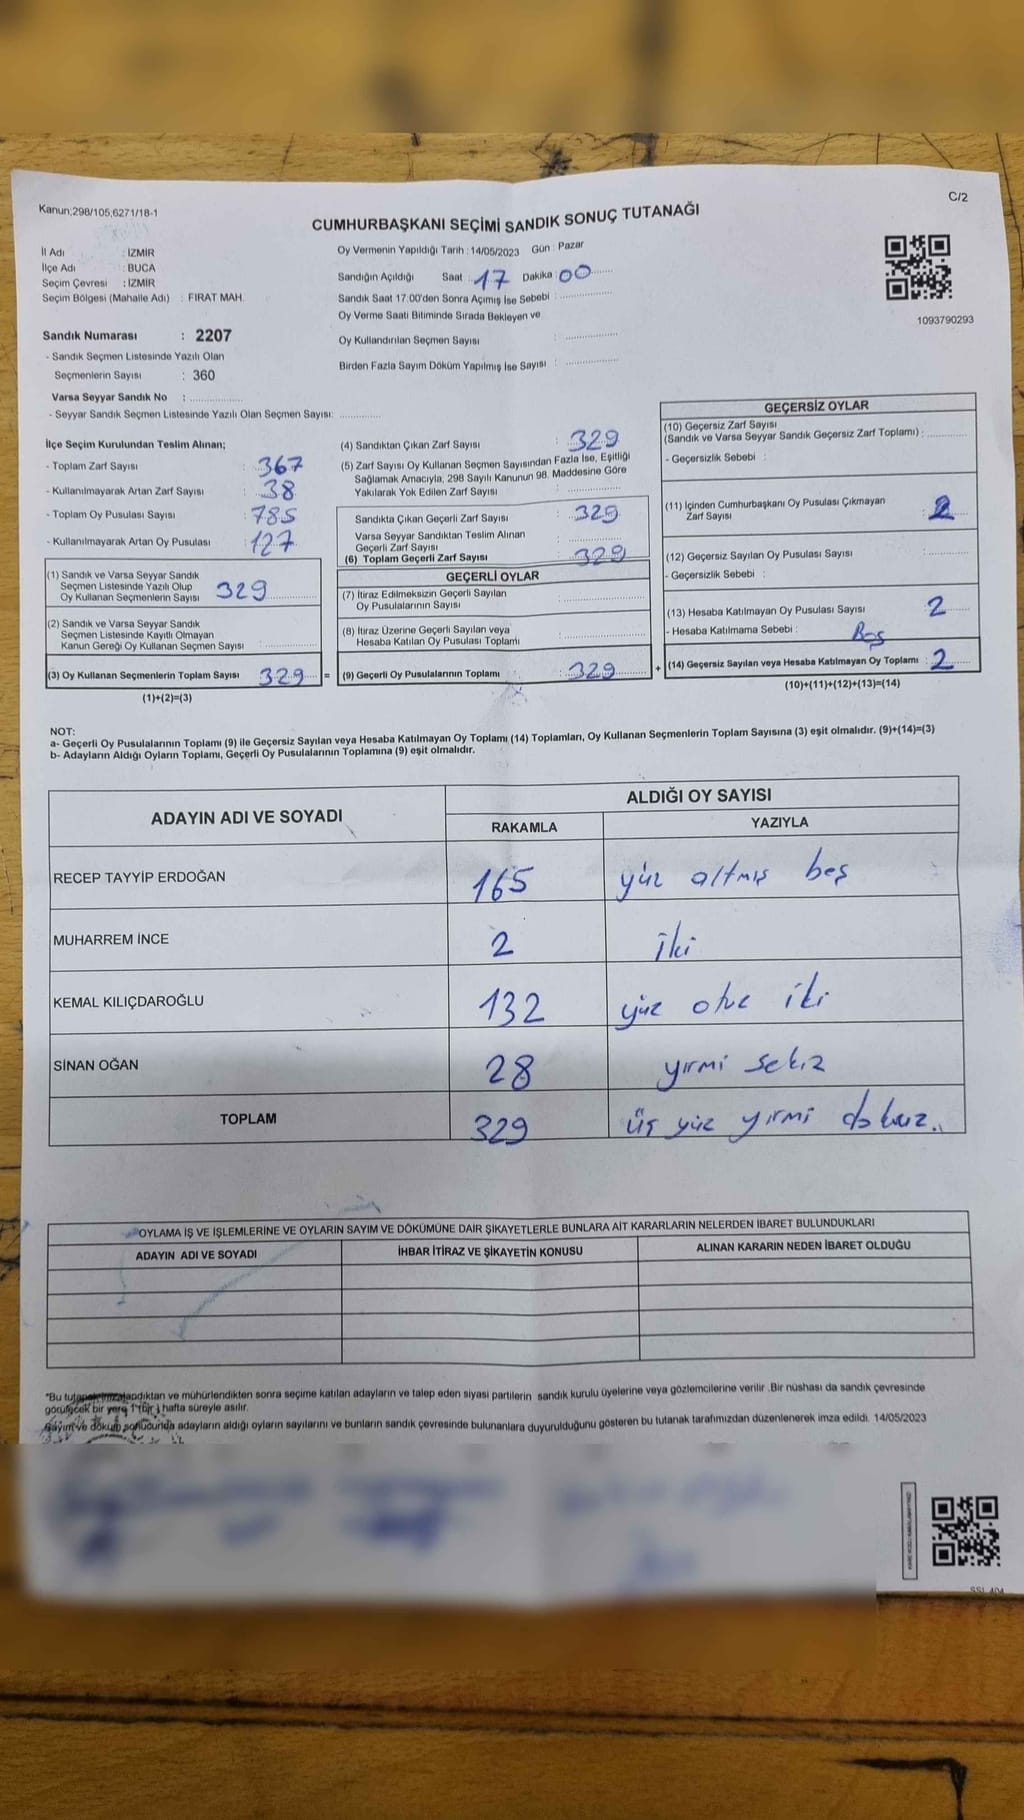 Kanun;298/105,6271/18-1
C/2
CUMHURBAŞKANI SEÇİMİ SANDIK SONUÇ TUTANAĞI
İl Adı : İZMİR
İlçe Adı : BUCA
Seçim Çevresi : İZMİR
Seçim Bölgesi (Mahalle Adı) : FIRAT MAH.
Oy Vermenin Yapıldığı Tarih : 14/05/2023 Gün : Pazar
Sandığın Açıldığı Saat : 17 Dakika : 00
Sandık Saat 17:00'den Sonra Açımış İse Sebebi :
Oy Verme Saati Bitiminde Sırada Bekleyen ve
Oy Kullandırılan Seçmen Sayısı :
Birden Fazla Sayım Döküm Yapılmış İse Sayısı :
1093790293
Sandık Numarası : 2207
- Sandık Seçmen Listesinde Yazılı Olan
Seçmenlerin Sayısı : 360
Varsa Seyyar Sandık No :
- Seyyar Sandık Seçmen Listesinde Yazılı Olan Seçmen Sayısı:
İlçe Seçim Kurulundan Teslim Alınan;
- Toplam Zarf Sayısı : 367
- Kullanılmayarak Artan Zarf Sayısı : 38
- Toplam Oy Pusulası Sayısı : 785
- Kullanılmayarak Artan Oy Pusulası : 127
(1) Sandık ve Varsa Seyyar Sandık
Seçmen Listesinde Yazılı Olup
Oy Kullanan Seçmenlerin Sayısı 329
(2) Sandık ve Varsa Seyyar Sandık
Seçmen Listesinde Kayıtlı Olmayan
Kanun Gereği Oy Kullanan Seçmen Sayısı :
(3) Oy Kullanan Seçmenlerin Toplam Sayısı 329 =
(1)+(2)=(3)
(4) Sandıktan Çıkan Zarf Sayısı : 329
(5) Zarf Sayısı Oy Kullanan Seçmen Sayısından Fazla İse, Eşitliği
Sağlamak Amacıyla, 298 Sayılı Kanunun 98. Maddesine Göre
Yakılarak Yok Edilen Zarf Sayısı :
Sandıkta Çıkan Geçerli Zarf Sayısı : 329
Varsa Seyyar Sandıktan Teslim Alınan
Geçerli Zarf Sayısı :
(6) Toplam Geçerli Zarf Sayısı : 329
GEÇERLİ OYLAR
(7) İtiraz Edilmeksizin Geçerli Sayılan
Oy Pusulalarının Sayısı :
(8) İtiraz Üzerine Geçerli Sayılan veya
Hesaba Katılan Oy Pusulası Toplamı :
(9) Geçerli Oy Pusulalarının Toplamı : 329 +
GEÇERSİZ OYLAR
(10) Geçersiz Zarf Sayısı
(Sandık ve Varsa Seyyar Sandık Geçersiz Zarf Toplamı) :
- Geçersizlik Sebebi :
(11) İçinden Cumhurbaşkanı Oy Pusulası Çıkmayan
Zarf Sayısı : 2
(12) Geçersiz Sayılan Oy Pusulası Sayısı :
- Geçersizlik Sebebi :
(13) Hesaba Katılmayan Oy Pusulası Sayısı : 2
- Hesaba Katılmama Sebebi : Boş
(14) Geçersiz Sayılan veya Hesaba Katılmayan Oy Toplamı : 2
(10)+(11)+(12)+(13)=(14)
NOT:
a- Geçerli Oy Pusulalarının Toplamı (9) ile Geçersiz Sayılan veya Hesaba Katılmayan Oy Toplamı (14) Toplamları, Oy Kullanan Seçmenlerin Toplam Sayısına (3) eşit olmalıdır. (9)+(14)=(3)
b- Adayların Aldığı Oyların Toplamı, Geçerli Oy Pusulalarının Toplamına (9) eşit olmalıdır.
ADAYIN ADI VE SOYADI
ALDIĞI OY SAYISI
RAKAMLA YAZIYLA
RECEP TAYYİP ERDOĞAN 165 yüz altmış beş
MUHARREM İNCE 2 iki
KEMAL KILIÇDAROĞLU 132 yüz otuz iki
SİNAN OĞAN 28 yirmi sekiz
TOPLAM 329 üç yüz yirmi dokuz..
OYLAMA İŞ VE İŞLEMLERİNE VE OYLARIN SAYIM VE DÖKÜMÜNE DAİR ŞİKAYETLERLE BUNLARA AİT KARARLARIN NELERDEN İBARET BULUNDUKLARI
ADAYIN ADI VE SOYADI İHBAR İTİRAZ VE ŞİKAYETİN KONUSU ALINAN KARARIN NEDEN İBARET OLDUĞU
*Bu tutanak imzalandıktan ve mühürlendikten sonra seçime katılan adayların ve talep eden siyasi partilerin sandık kurulu üyelerine veya gözlemcilerine verilir .Bir nüshası da sandık çevresinde
görülecek bir yere 1 (bir) hafta süreyle asılır.
Sayım ve döküm sonucunda adayların aldığı oyların sayılarını ve bunların sandık çevresinde bulunanlara duyurulduğunu gösteren bu tutanak tarafımızdan düzenlenerek imza edildi. 14/05/2023